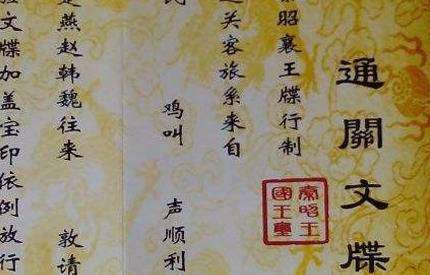 通關文牒
秦昭王
國王
昭襄王牒行制
关客旅系来自
鸡叫 声顺利
燕赵韩魏往来 敦请
文牒加盖宝印依例放行